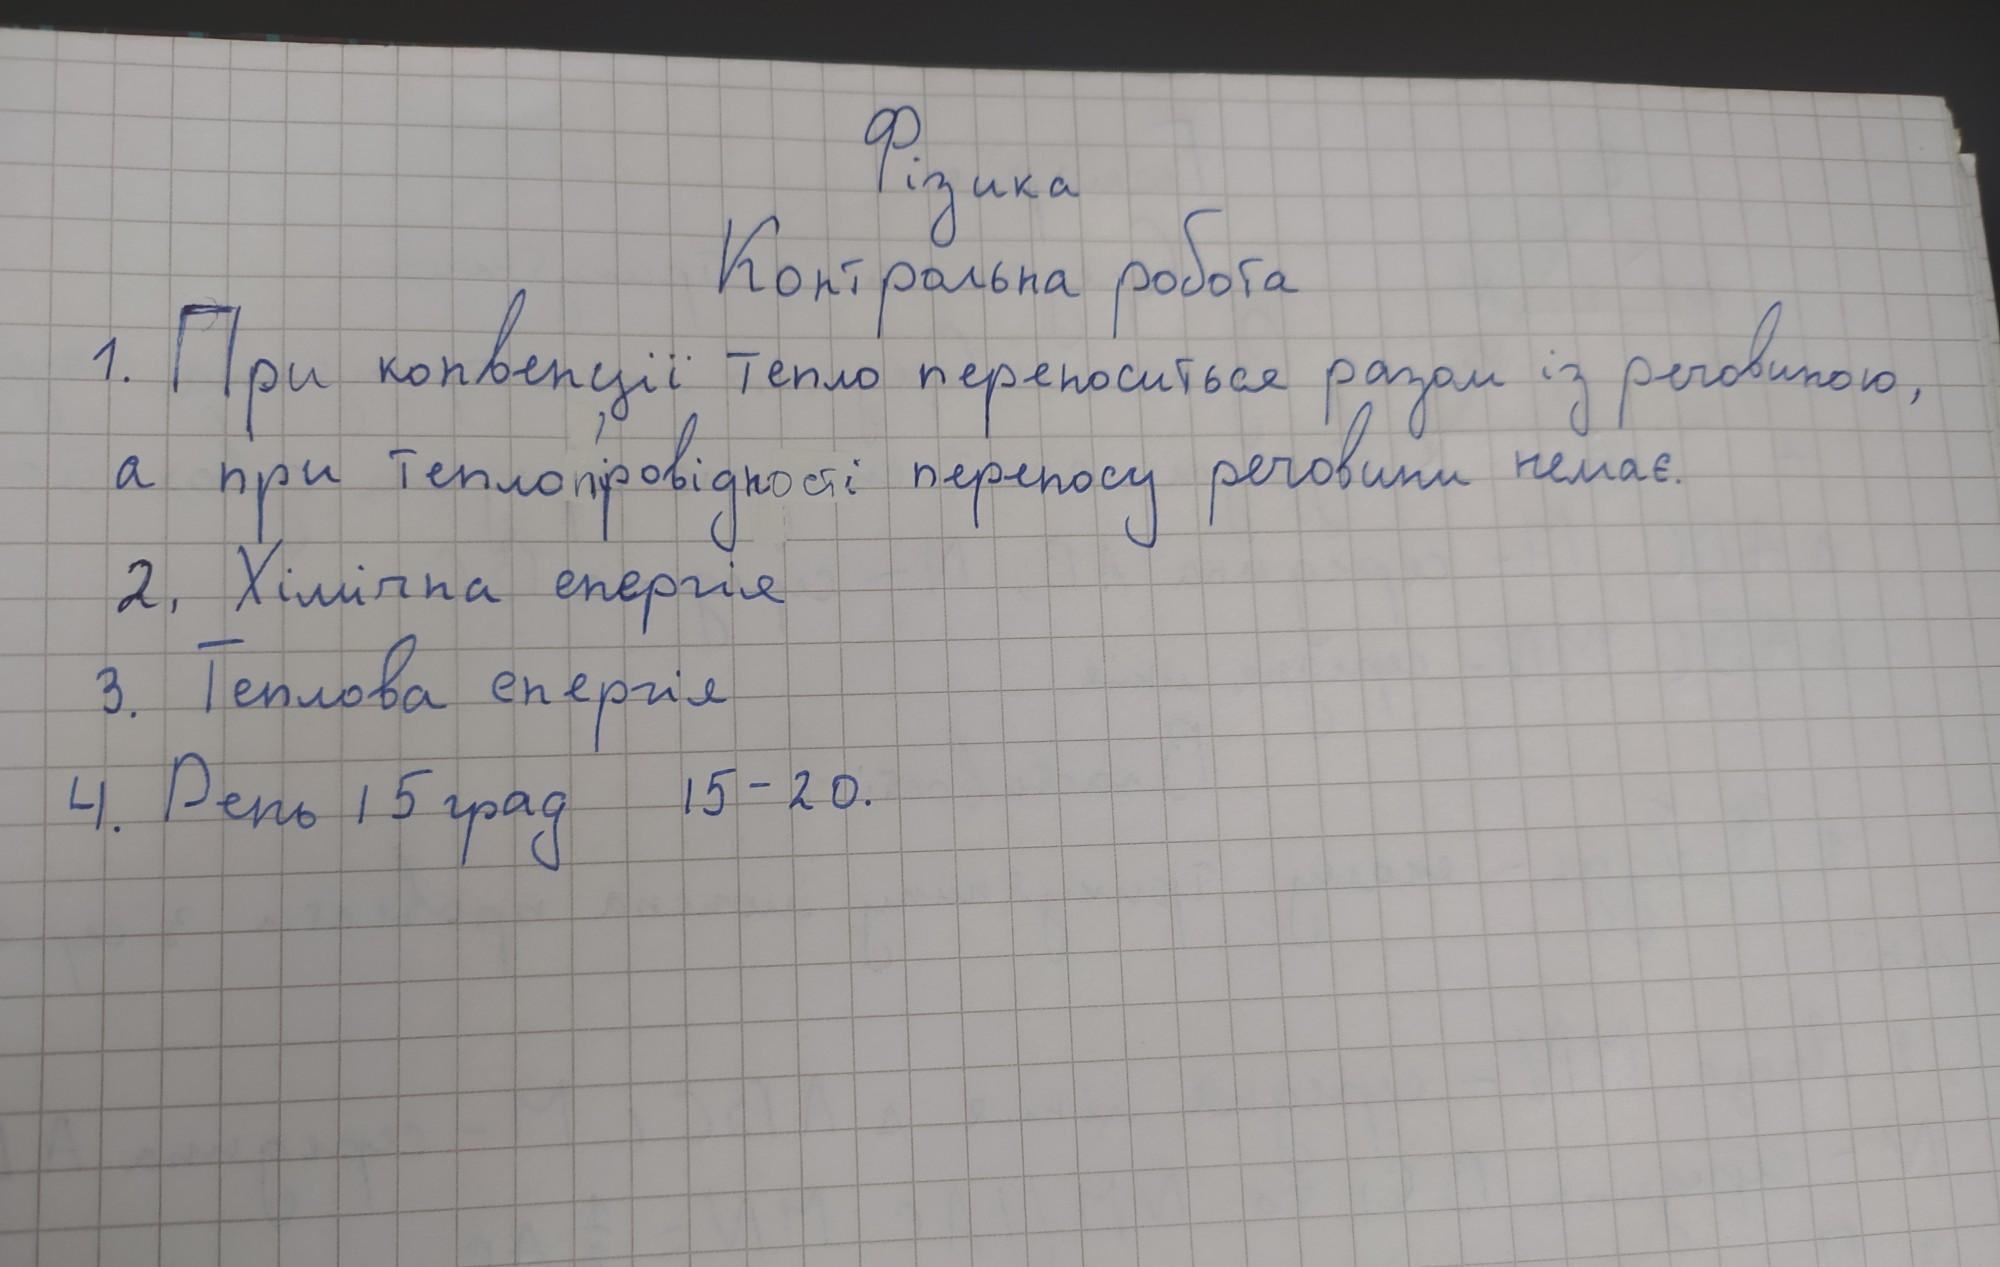 Фізика
Контрольна робота
1. При конвенції тепло переноситься разом із речовиною,
а при теплопровідності переносу речовини немає.
2. Хімічна енергія
3. Теплова енергія
4. Рень 15 град 15-20.